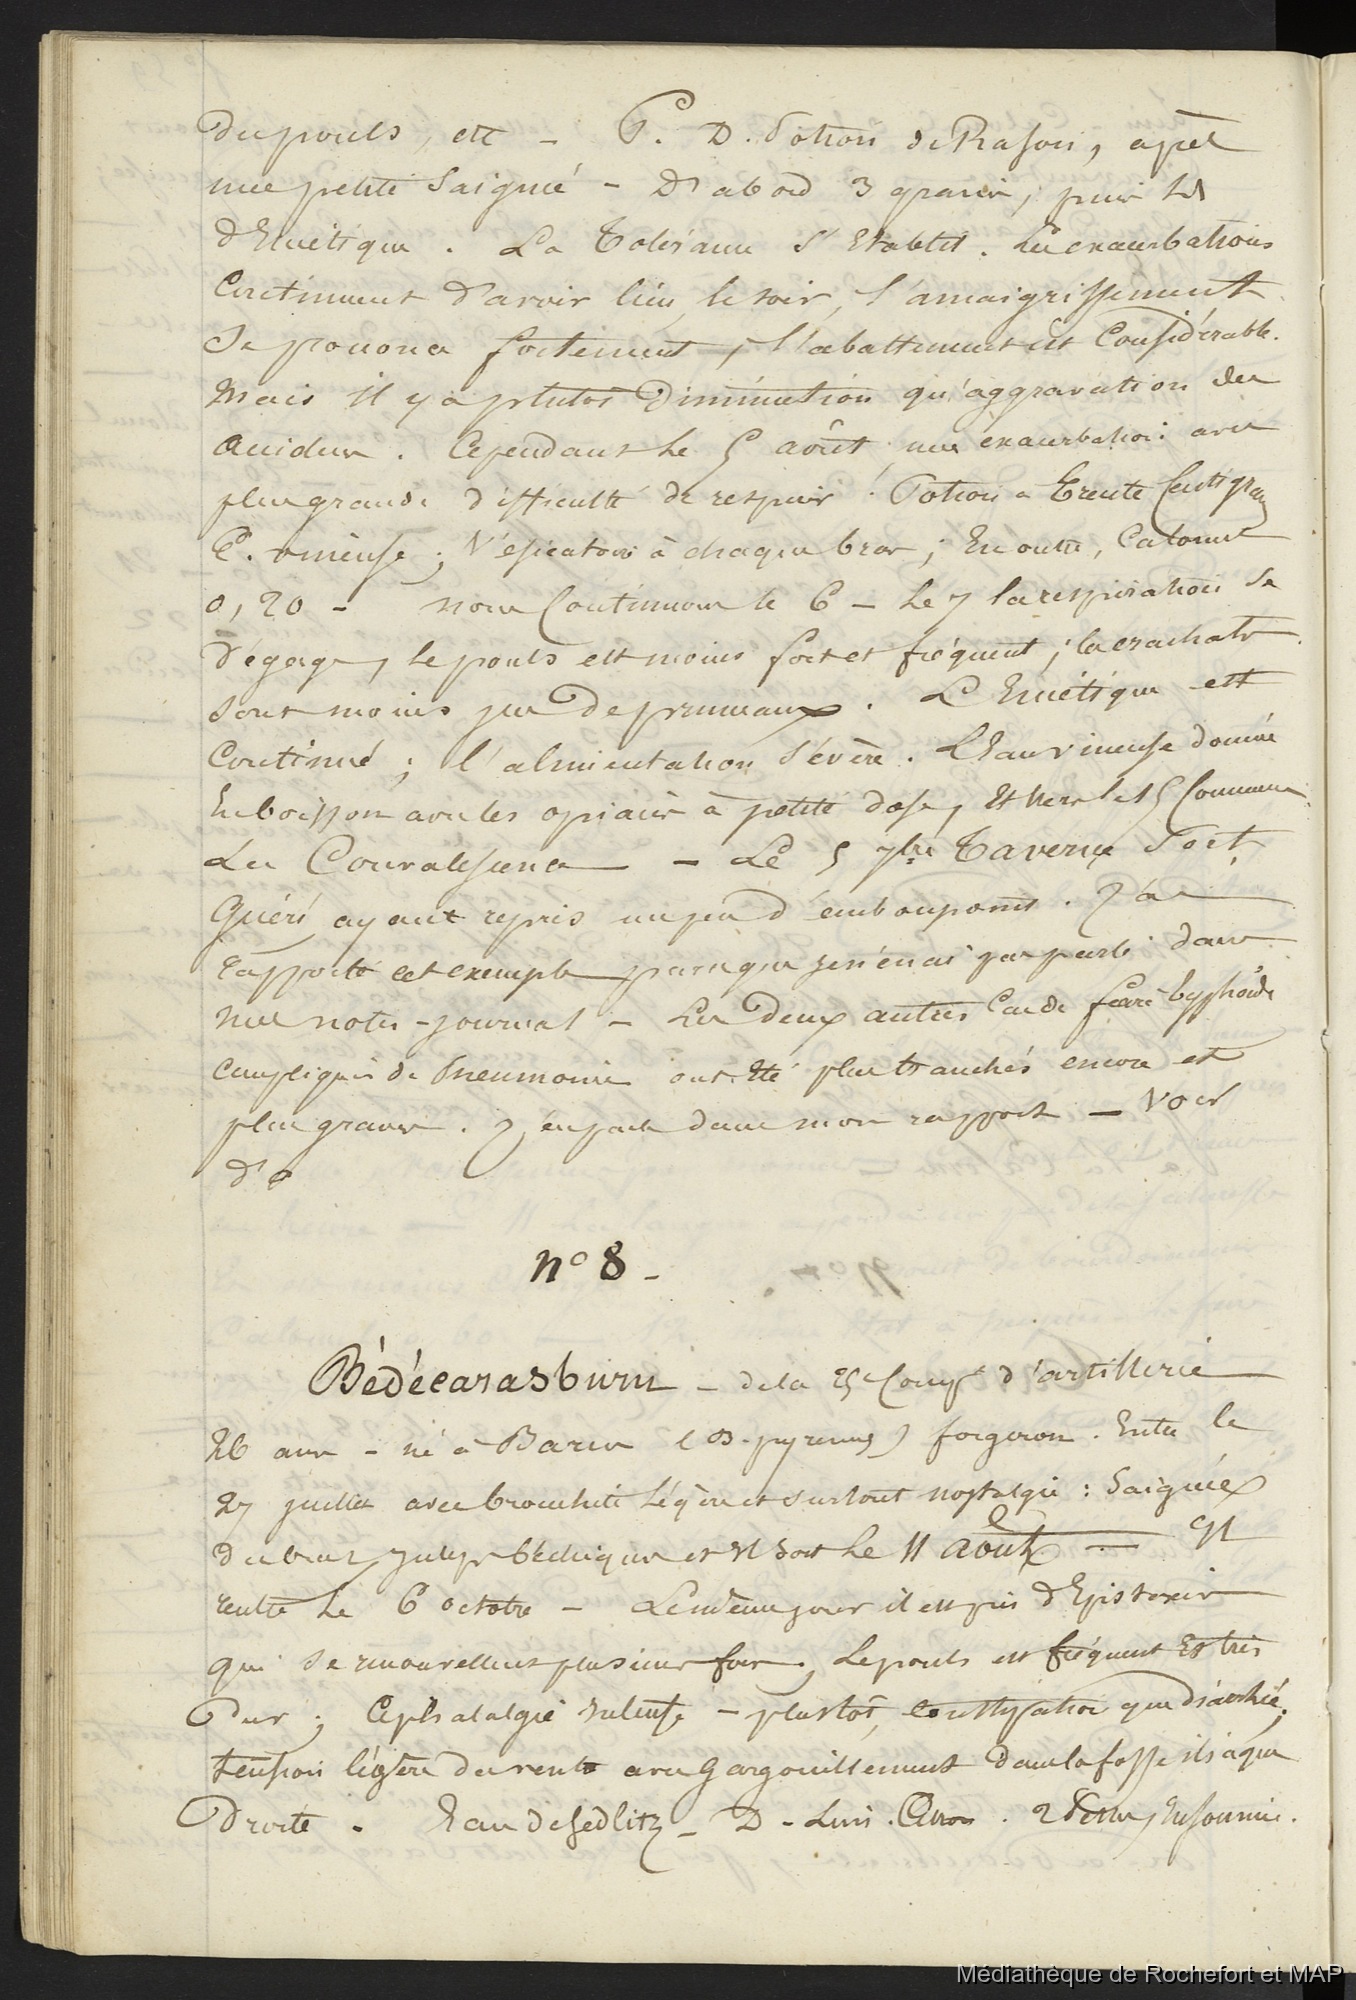 du pouls, etc - P. D. Potion de Rasori, après
une petite saignée - D'abord 3 grains, puis
d'Emétique. La Tolérance s'Etablit. Les exacerbations
Continuent d'avoir lieu le soir, l'amaigrissement
se prononce fortement, l'abattement est Considérable.
Mais il y a plutôt Diminution qu'aggravation des
accidens. Cependant le 5 août une exacerbation avec
plus grande difficulté de respirer. Potion à trente Centigram
E. vineuse; Vésicatoire à chaque bras; En outre, Calomel
0,20 - nous Continuons le 6 - Le 7 la respiration se
dégage, le pouls est moins fort et fréquent; les crachats
sont moins jus de pruneaux. L'Emétique est
Continué; l'alimentation sévère. L'Eau vineuse donnée
En boisson avec les opiacés à petite dose, Et vers le 15 Commence
La Convalescence - Le 5 7bre Taverne Sort
Guéri ayant repris un peu d'embonpoint. J'ai
rapporté cet exemple parce que je n'en ai pas parlé dans
mes notes-journal - Les Deux autres Cas de fièvre typhoïde
compliqués de Pneumonie ont Eté plus tranchés encore et
plus graves. J'en parle dans mon rapport - Voir
d°
n° 8 -
Bédécarasburu - de la 25e Compie d'artillerie
26 ans - né à Barcus (B. pyrénées) forgeron. Entre le
27 juillet avec bronchite légère et surtout nostalgie: Saignée
du bras, Julep béchique et Il sort le 11 Août - Il
rentre Le 6 octobre - Le même jour il est pris d'Epistaxis
qui se renouvellent plusieurs fois, Le pouls est fréquent Et très
Dur; Céphalalgie intense - plustôt constipation que diarrhée.
tension légère du ventre avec Gargouillement dans la fosse iliaque
Droite. Eau de Sedlitz - D - Lim. Citron. Insomnie.
Médiathèque de Rochefort et MAP